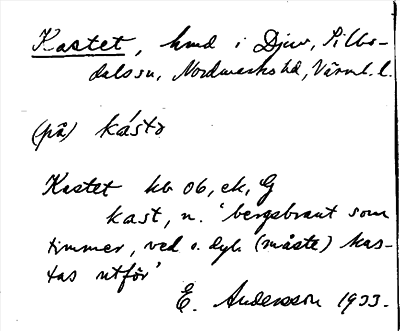 Kastet, hmd i Djuv, Silbo-
dals sn, Nordmarks hd, Värml. l.
(på) kástə
Kastet kb 06, ek, G
kast, n. 'bergsbrant som
timmer, ved o. dyl. (måste) kas-
tas utför'
E. Andersson 1933.